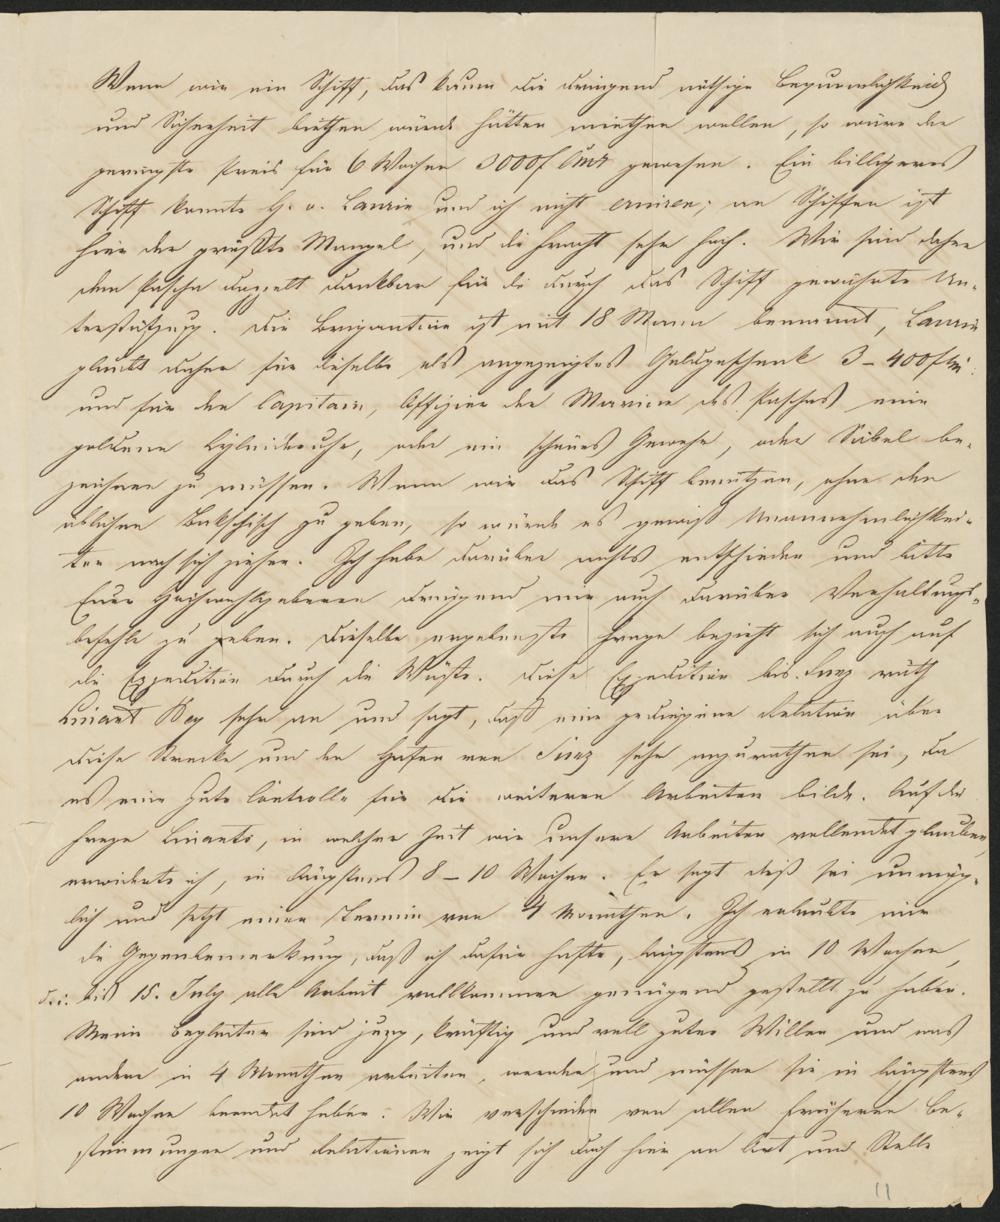 Wenn wir ein Schiff, das kaum die dringend nöthige Bequemlichkeit
und Sicherheit biethen würde hätten miethen wollen, so wäre der
geringste Preis für 6 Wochen 3000 f Cmz gewesen. Ein billigeres
Schiff konnte H. v. Laurin und ich nicht eruiren; an Schiffen ist
hier der größte Mangel, und die Fracht sehr hoch. Wir sind daher
dem Pascha doppelt dankbar für die durch das Schiff gewährte Un-
terstützung. Die Brigantine ist mit 18 Mann bemannt, Laurin
glaubt daher für dieselbe als angezeigtes Geldgeschenk 3–400 f
und für den Capitain, Offizier der Marine des Paschas eine
goldene Cylinderuhr, oder ein schönes Gewehr, oder Säbel be-
zeichnen zu müssen. Wenn wir das Schiff benutzen, ohne den
üblichen Bakschisch zu geben, so würde es gewiß Unannehmlichkei-
ten nach sich ziehen. Ich habe darüber nichts entschieden und bitte
Euer Hochwohlgeboren dringend mir auch darüber Verhaltungs-
befehle zu geben. Dieselbe ergebenste Frage bezieht sich auch auf
die Expedition durch die Wüste. Diese Expedition bis Suez räth
Linant Bey sehr an und sagt, daß eine gediegene Relation über
diese Strecke und den Hafen von Suez sehr anzurathen sei, da
es eine gute Controlle für die weiteren Arbeiten bilde. Auf die
Frage Linants, in welcher Zeit wir unsere Arbeiten vollendet glauben,
erwiderte ich, in längstens 8–10 Wochen. Er sagt dieß sei unmög-
lich und setzt einen Termin von 4 Monathen. Ich erlaubte mir
die Gegenbemerkung, daß ich dafür hafte, längstens in 10 Wochen,
d. i. bis 15. July alle Arbeit vollkommen genügend gestellt zu haben.
Meine Begleiter sind jung, kräftig und voll guten Willen und was
andere in 4 Monathen arbeiten, werden und müssen sie in längstens
10 Wochen beendet haben. Wie verschieden von allen früheren Be-
stimmungen und Relationen zeigt sich doch hier an Ort und Stelle
11